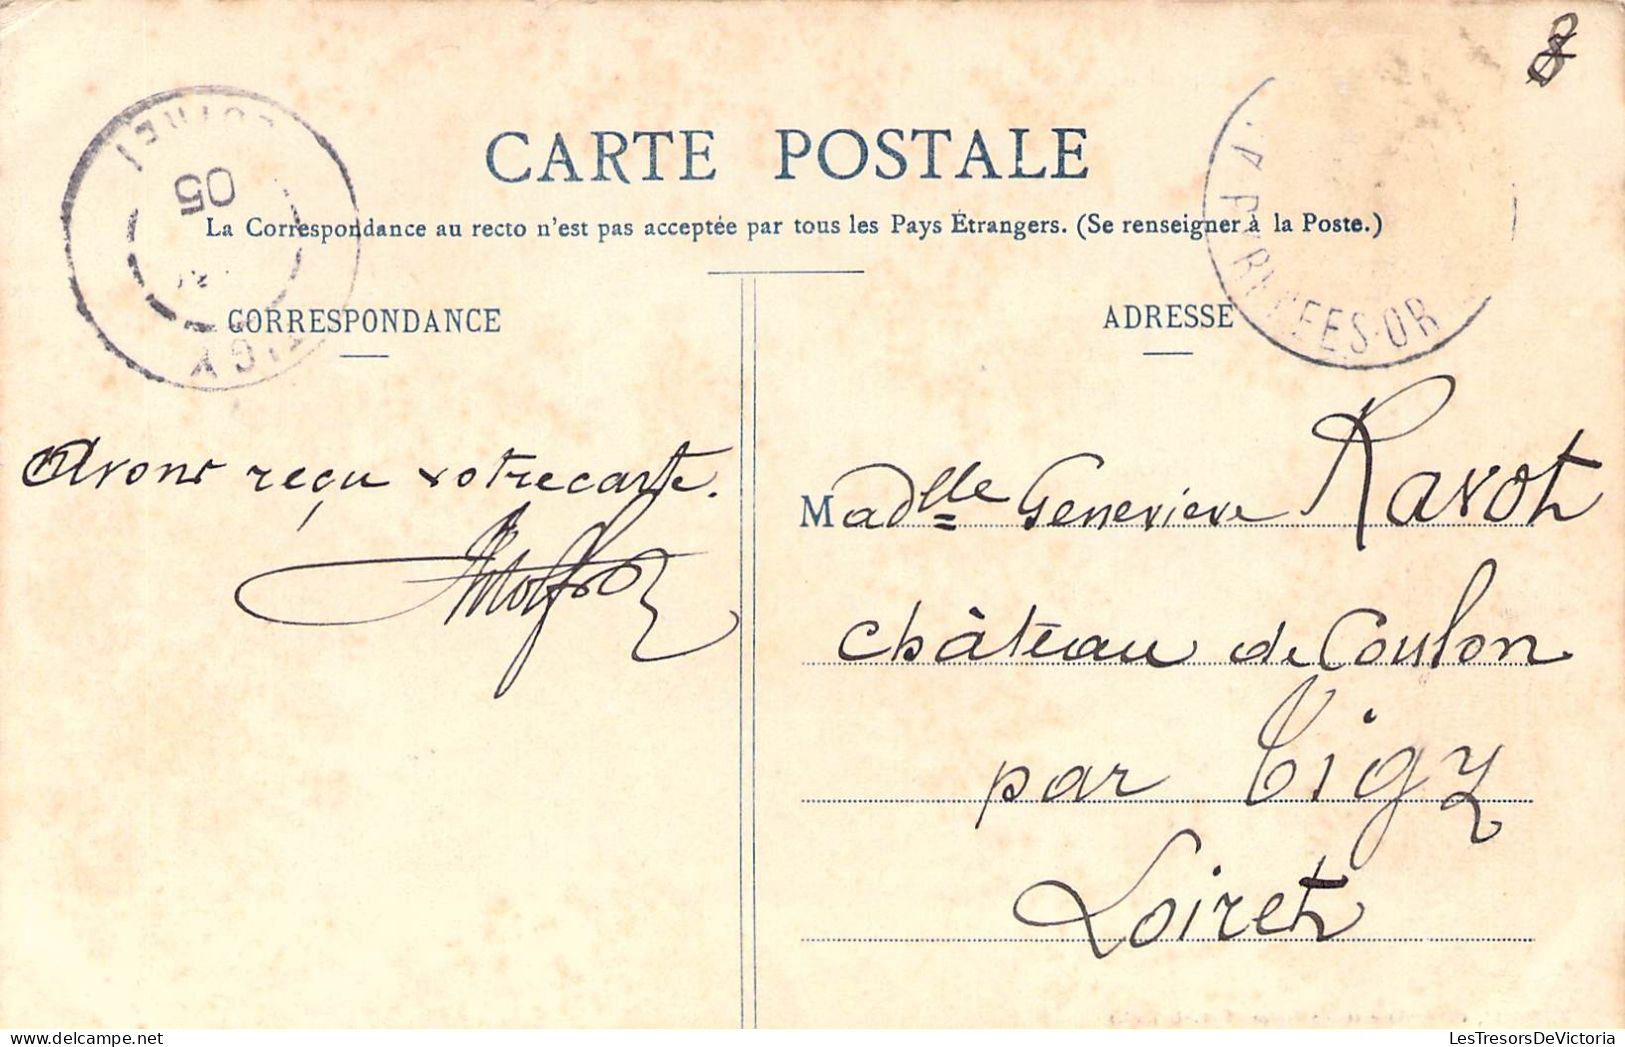 CARTE POSTALE
La Correspondance au recto n'est pas acceptée par tous les Pays Étrangers. (Se renseigner à la Poste.)
CORRESPONDANCE
ADRESSE
05
Avons reçu votre carte.
Madlle Geneviève Ravot
château de Coulon
par Tigy
Loiret
LesTresorsDeVictoria